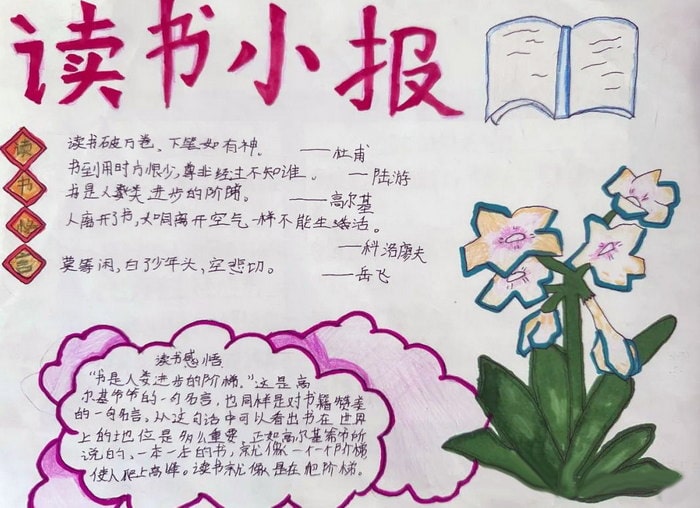 读书小报
读书名言
读书破万卷、下笔如有神。——杜甫
书到用时方恨少,尊非经过不知谁。——陆游
书是人数类进步的阶梯。——高尔基
人离开了书,如同离开空气一样不能生活。
——科洛廖夫
莫等闲,白了少年头,空悲切。——岳飞
读书感悟
“书是人类进步的阶梯。”这是高
尔基爷爷的一句名言,也同样是对书籍赞美
的一句名言。从这句话中可以看出书在世界
上的地位是多么重要。正如高尔基爷爷所
说的,一本一本的书,就像一个个阶梯
使人爬上高峰。读书就像是在爬阶梯。